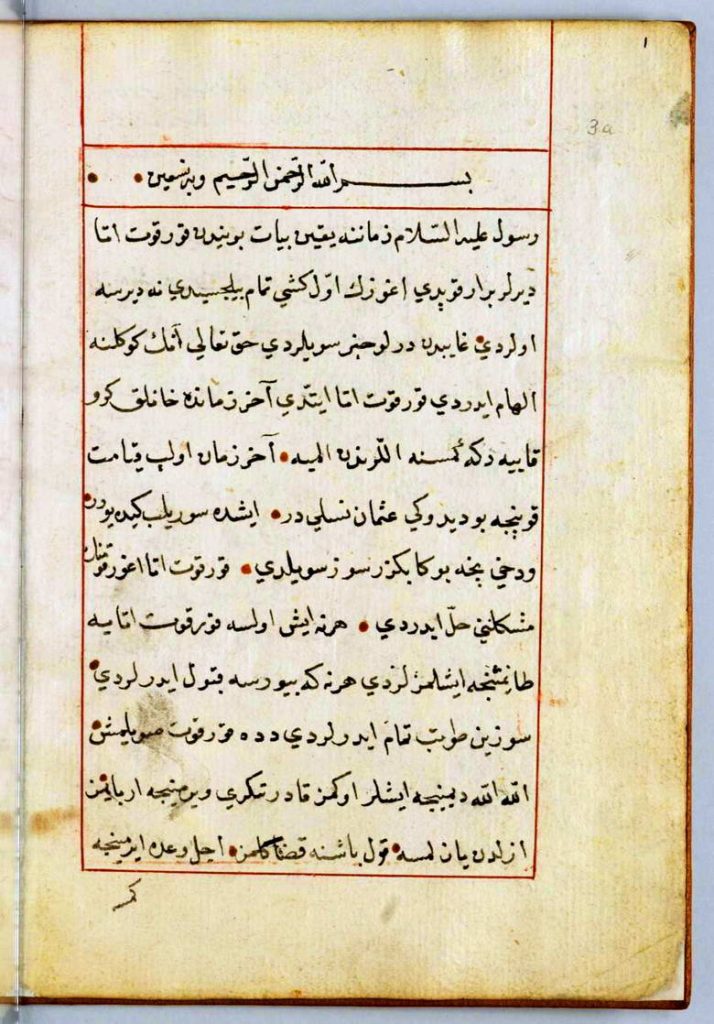 ١
3a
بســـم الله الرّحمن الرّحيم وبه نستعين
رسول عليه السّلام زماننه يقين بيات بويندن قورقوت اتا
ديرلر بر ار قوپدي اغوزك اوّل كشي تمام بيلجسيدي نه ديرسه
اولردي غايبدن درلو خبر سويلردي حق تعالى آنك كوكلنه
الهام ايدردي قورقوت اتا ايتدي آخر زمانده خانلق كرو
قاييه دكه كمسنه اللرندن المیه آخر زمان اولب قيامت
قوپنجه بو ديدوكي عثمان نسلي در ايشده سوريلب كيده يورر
ودخي نچه بوكا بكزر سوز سويلدي قورقوت اتا اغوز قومنك
مشكلني حلّ ايدردي هر نه ايش اولسه قورقوت اتايه
طانيشمنجه ايشلمزلردي هر نه كه بيورسه قبول ايدرلردي
سوزين طوتب تمام ايدرلردي دده قورقوت سويلمش
الله الله ديمينجه ايشلر اوكمز قادر تنكري ويرمينجه ار بايمز
ازلدن يازلمسه قول باشنه قضا كلمز اجل وعده ايرمينجه
كمـ